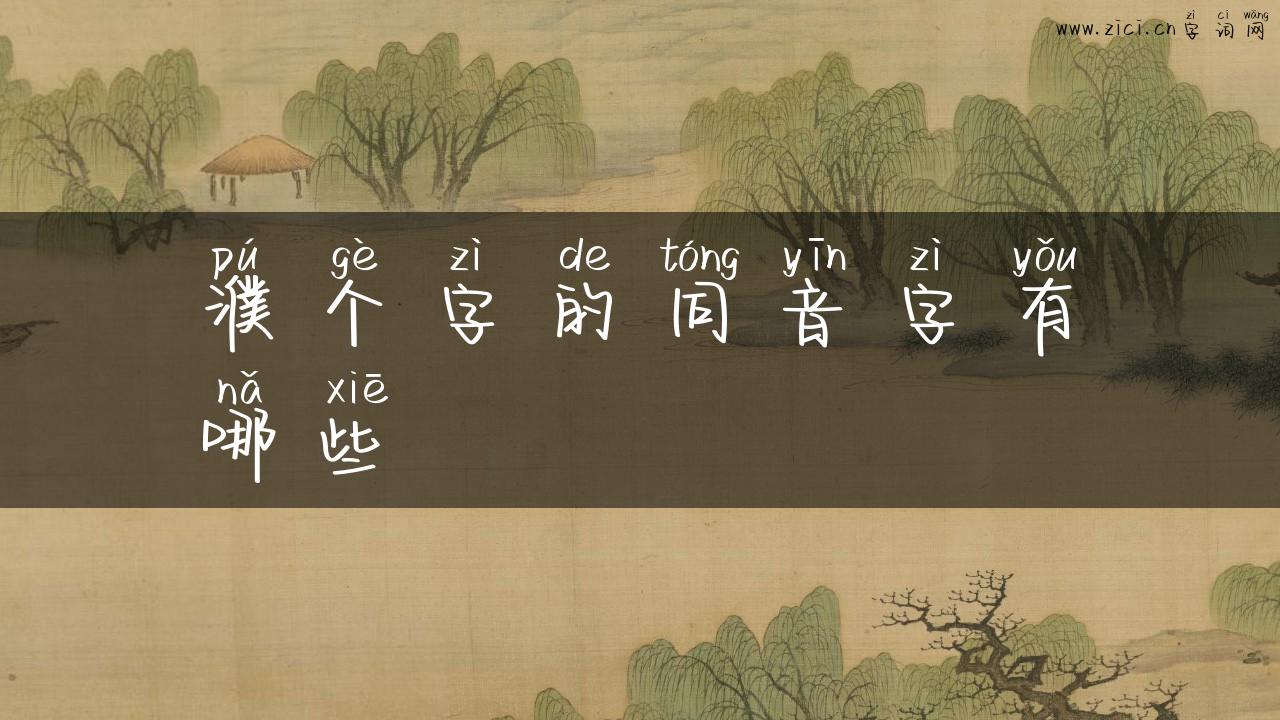 zì cí wǎng
www.zici.cn 字 词 网
pú gè zì de tóng yīn zì yǒu
濮 个 字 的 同 音 字 有
nǎ xiē
哪 些